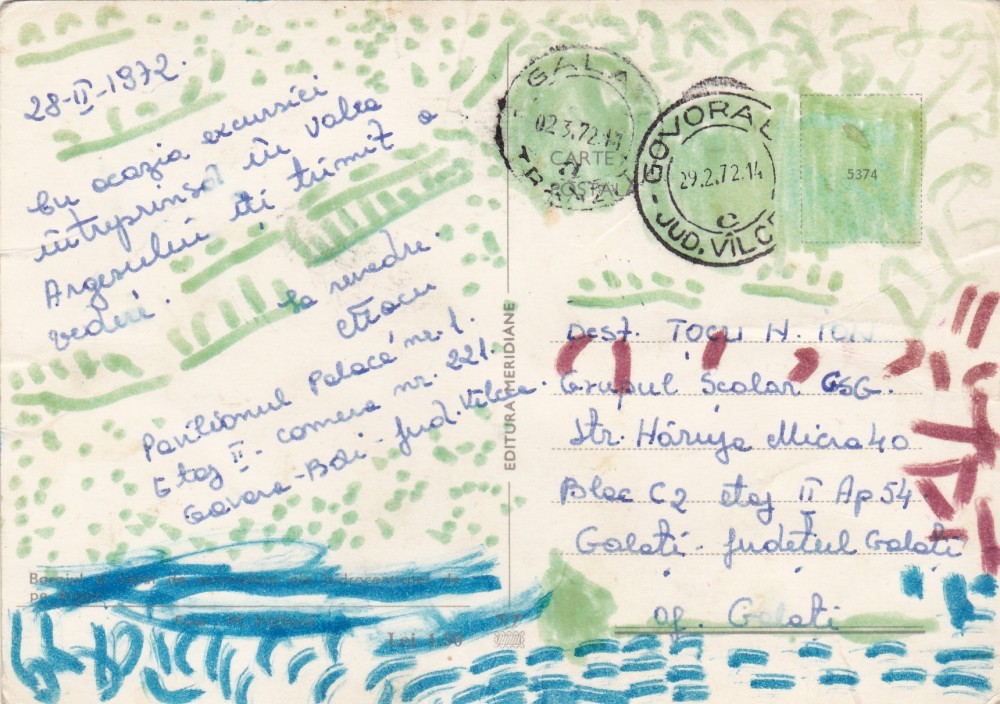 28-II-1972.
Cu ocazia excursiei
întreprinsă în valea
Argeșului îți trimit o
vedere.
La revedere.
Pavilionul Palace nr. 1.
Etaj II. camera nr. 221.
Govora-Băi - Jud. Vîlcea.
EDITURA MERIDIANE
Lei
GALA
02.3.72.
CARTE
POSTALA
GOVORA
29.2.72.14
c
JUD. VÎLC
5374
Dest. TOCU N. ION
Grupul Școlar GSG.
Str. Micro 40
Bloc C2 etaj II Ap 54
Galați - Județul Galați
of. Galați